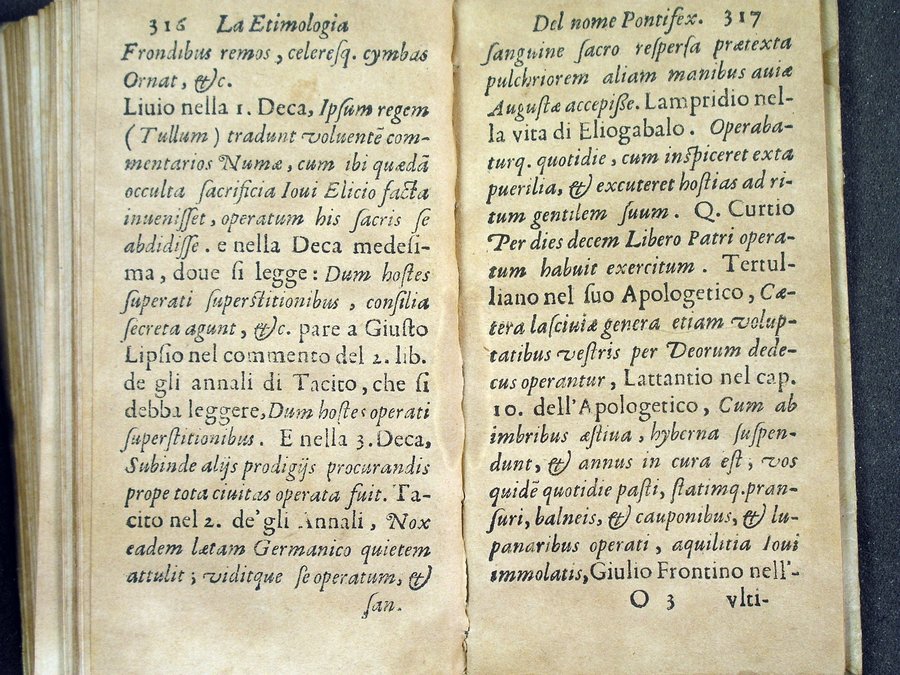 316 La Etimologia
Frondibus remos, celeresq. cymbas
Ornat, &c.
Liuio nella 1. Deca, Ipſum regem
(Tullum) tradunt voluentē com-
mentarios Numæ, cum ibi quædā
occulta ſacrificia Ioui Elicio facta
inueniſſet, operatum his ſacris ſe
abdidiſſe. e nella Deca medeſi-
ma, doue ſi legge: Dum hoſtes
ſuperati ſuperſtitionibus, conſilia
ſecreta agunt, &c. pare a Giuſto
Lipſio nel commento del 2. lib.
de gli annali di Tacito, che ſi
debba leggere, Dum hoſtes operati
ſuperſtitionibus. E nella 3. Deca,
Subinde alijs prodigijs procurandis
prope tota ciuitas operata fuit. Ta-
cito nel 2. de'gli Annali, Nox
eadem lætam Germanico quietem
attulit; viditque ſe operatum, &
ſan.
Del nome Pontifex. 317
ſanguine ſacro reſperſa prætexta
pulchriorem aliam manibus auiæ
Auguſtæ accepiſſe. Lampridio nel-
la vita di Eliogabalo. Operaba-
turq. quotidie, cum inſpiceret exta
puerilia, & excuteret hoſtias ad ri-
tum gentilem ſuum. Q. Curtio
Per dies decem Libero Patri opera-
tum habuit exercitum. Tertul-
liano nel ſuo Apologetico, Cæ-
tera laſciuiæ genera etiam volup-
tatibus veſtris per Deorum dede-
cus operantur, Lattantio nel cap.
10. dell'Apologetico, Cum ab
imbribus æſtiua, hyberna ſuſpen-
dunt, & annus in cura eſt, vos
quidē quotidie paſti, ſtatimq. pran-
ſuri, balneis, & cauponibus, & lu-
panaribus operati, aquilitia Ioui
immolatis, Giulio Frontino nell'-
O 3 vlti-